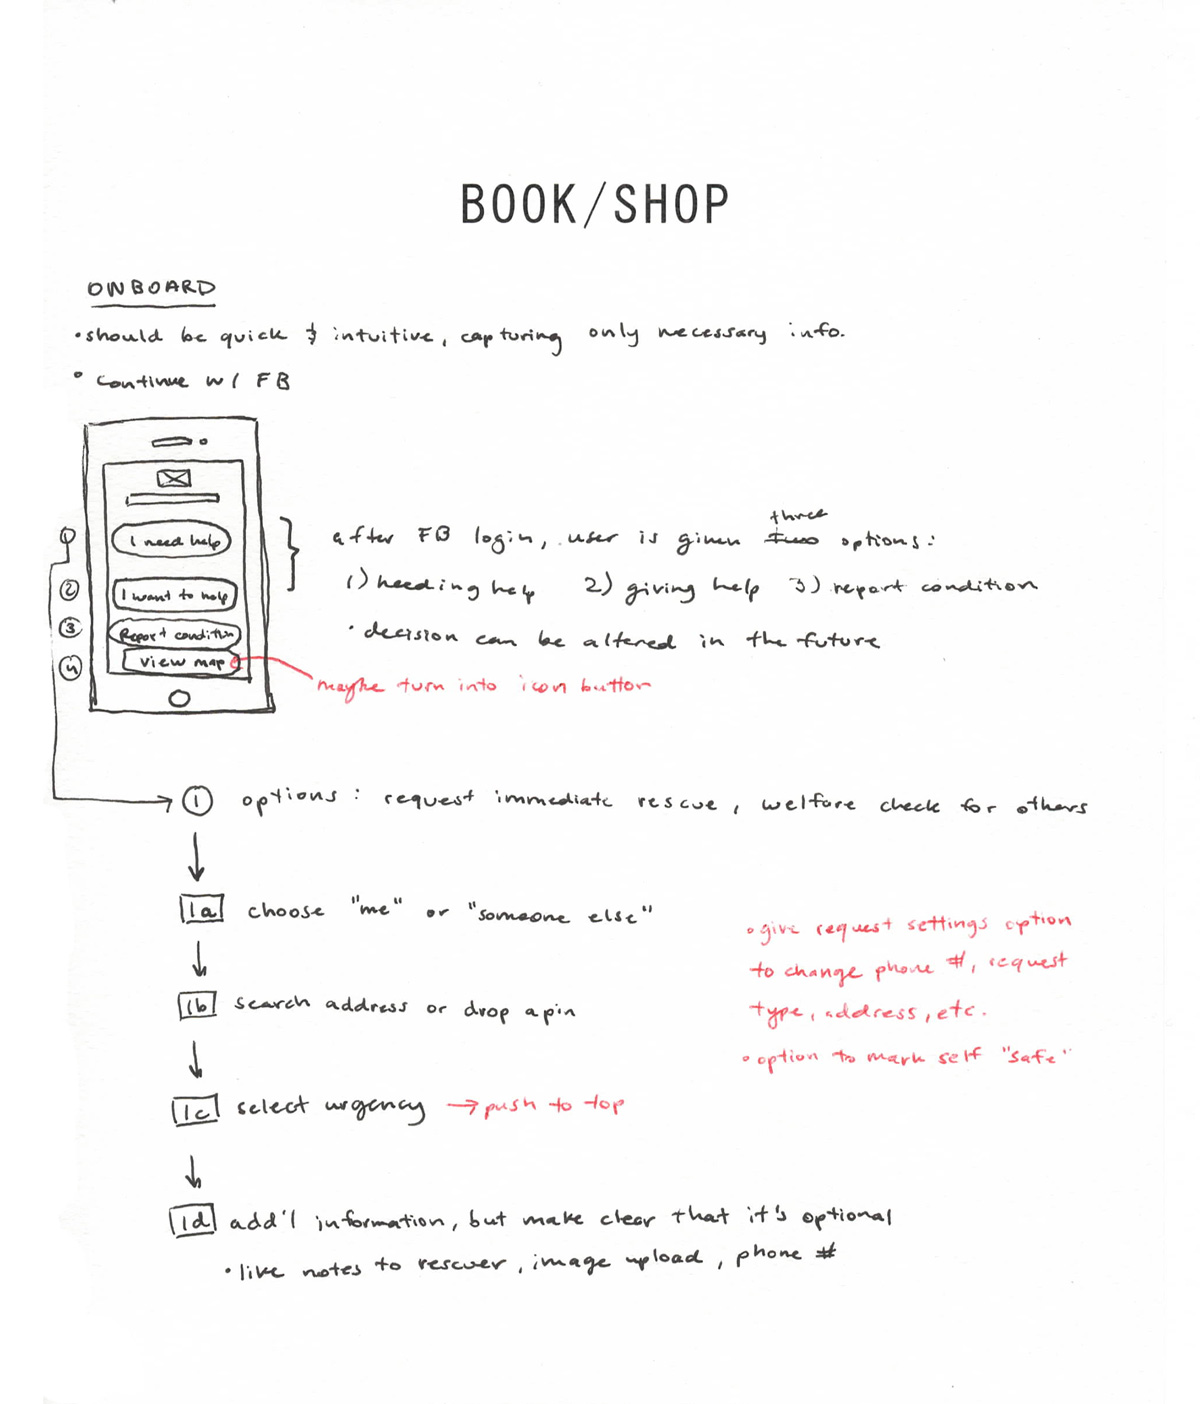 BOOK/SHOP
ONBOARD
• should be quick & intuitive, capturing only necessary info.
• Continue w/ FB
I need help
I want to help
Report condition
View map
1
2
3
4
three
after FB login, user is given two options:
1) needing help 2) giving help 3) report condition
• decision can be altered in the future
maybe turn into icon button
1 options: request immediate rescue, welfare check for others
1a choose "me" or "someone else"
1b search address or drop a pin
1c select urgency → push to top
1d add'l information, but make clear that it's optional
• like notes to rescuer, image upload, phone #
• give request settings option
to change phone #, request
type, address, etc.
• option to mark self "safe"